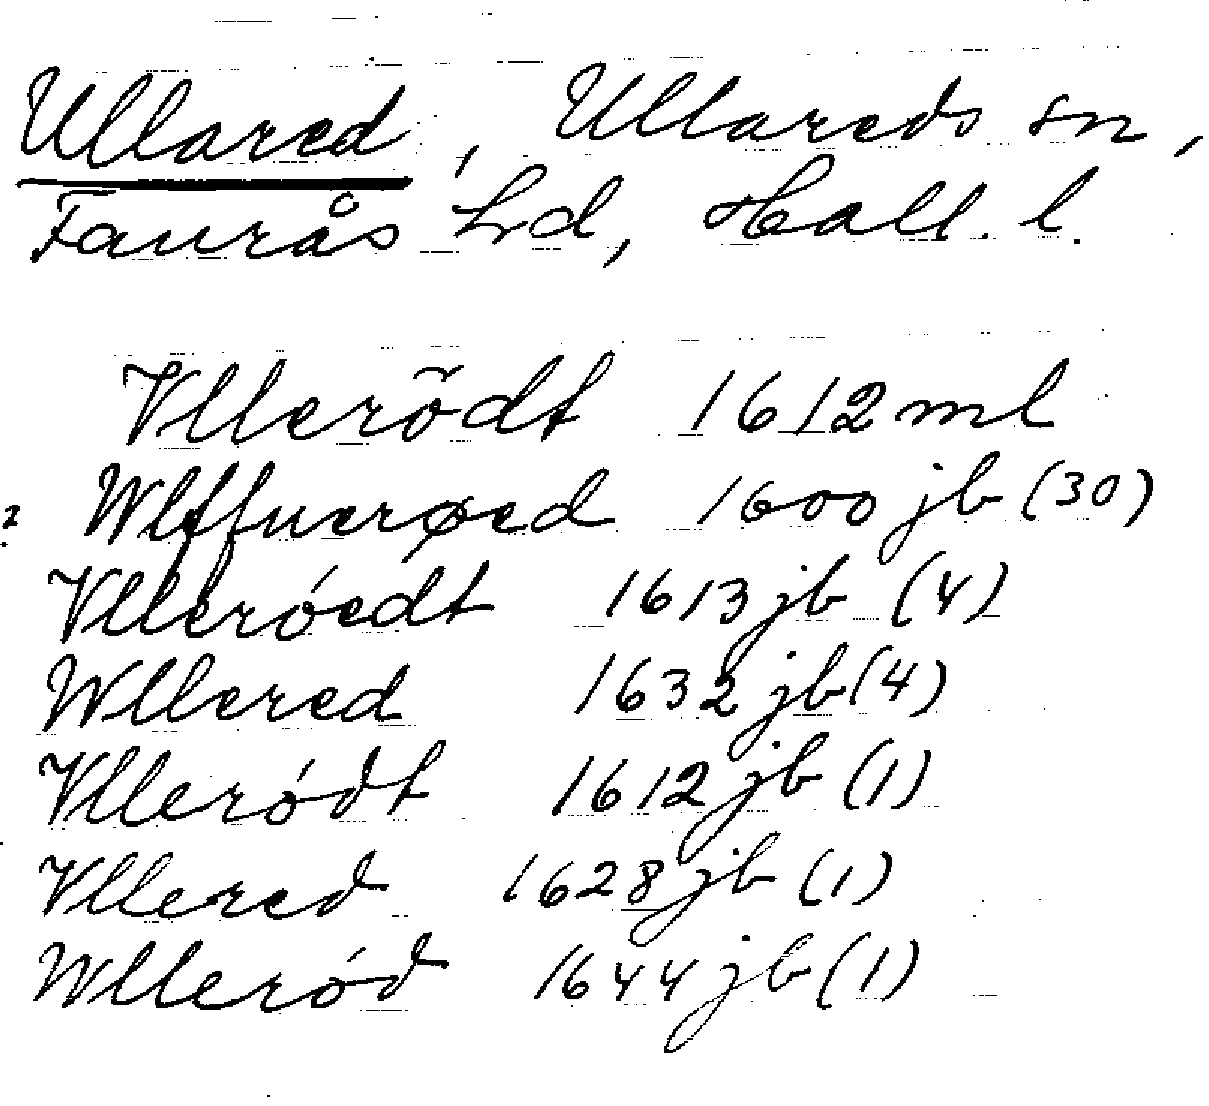 Ullared, Ullareds sn,
Faurås hd, Hall. l.
Vllerõdt 1612 ml
? Wlffuerøed 1600 jb (30)
Vlleróedt 1613 jb (4)
Wllered 1632 jb (4)
Vlleródt 1612 jb (1)
Vllered 1628 jb (1)
Wlleród 1644 jb (1)